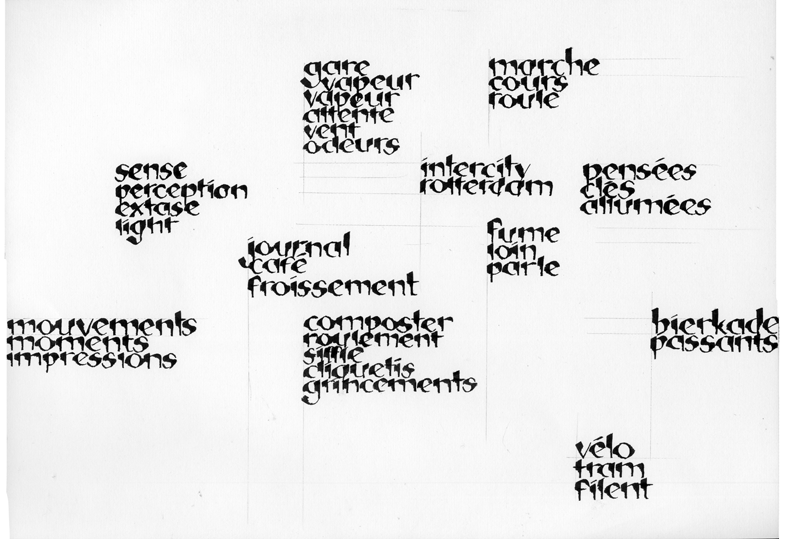 gare
vapeur
vapeur
attente
vent
odeurs
marche
cours
roule
sense
perception
extase
light
intercity
rotterdam
pensées
clés
allumées
journal
café
froissement
fume
loin
parle
mouvements
moments
impressions
composter
roulement
siffle
cliquetis
grincements
bierkade
passants
vélo
tram
filent